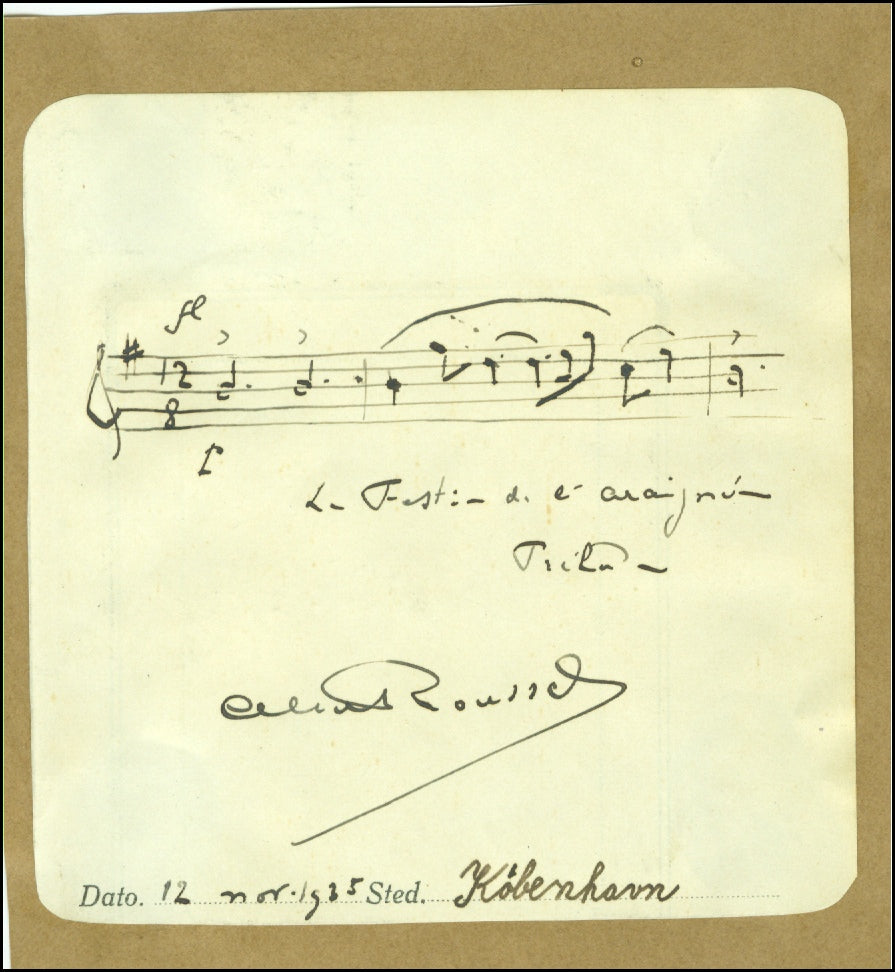 fl
12
8
p
Le Festin de l'araignée
Prélude
Albert Roussel
Dato. 12 nov. 1935 Sted. København